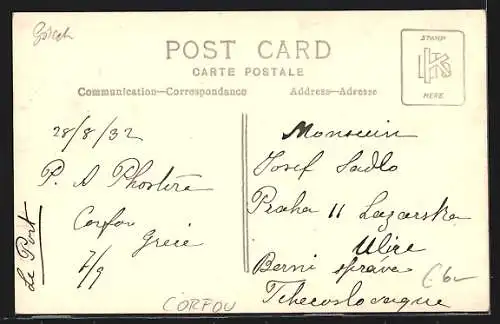 POST CARD
CARTE POSTALE
Communication—Correspondance
Address—Adresse
STAMP
HERE
28/8/32
P. A
Corfou
Grèce
7/9
Le Port
Monsieur
Josef Sadlo
Praha II Lazarska
Ulice
Berni správa
Tchecoslovaquie
CORFOU